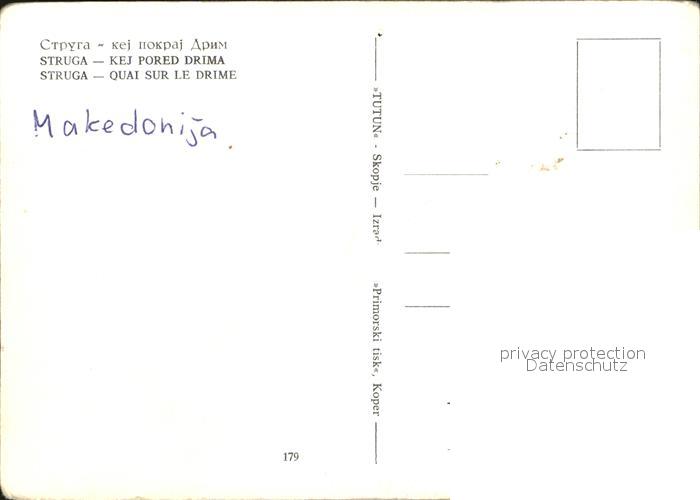 Струга ~ кеј покрај Дрим
STRUGA — KEJ PORED DRIMA
STRUGA — QUAI SUR LE DRIME
Makedonija
»TUTUN« - Skopje —
»Primorski tisk«, Koper
privacy protection
Datenschutz
179